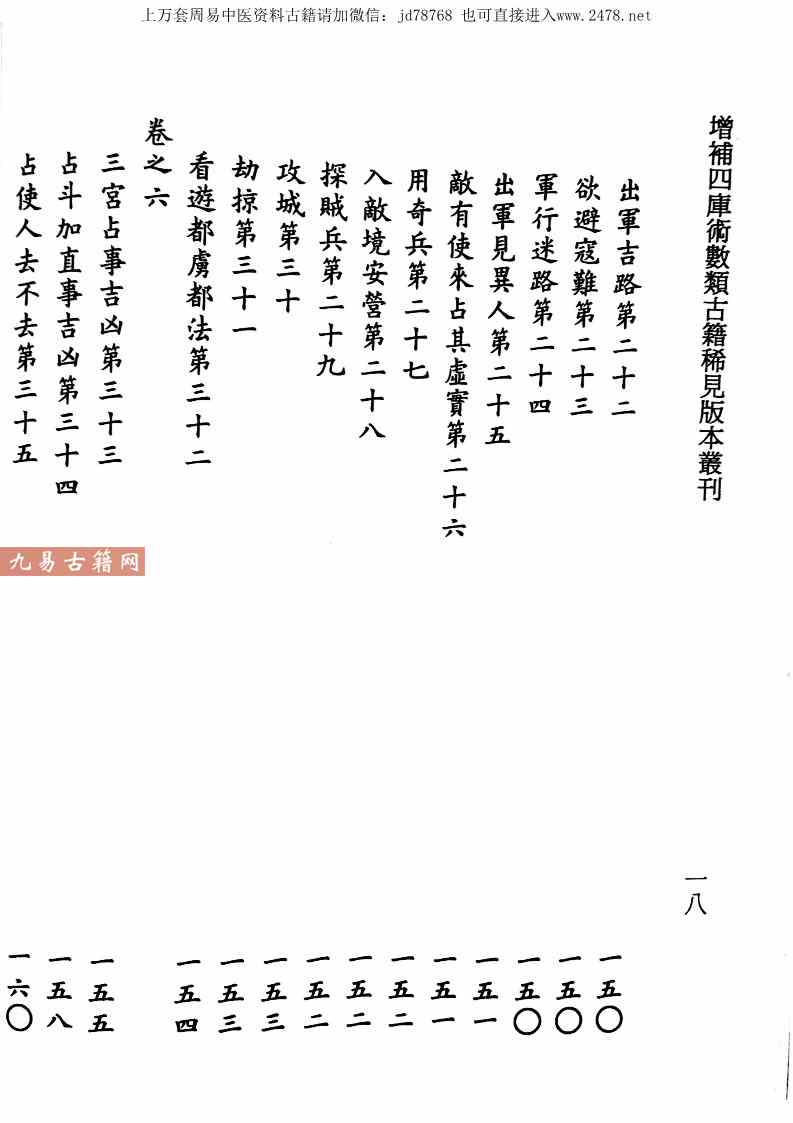 上万套周易中医资料古籍请加微信：jd78768 也可直接进入www.2478.net
增補四庫術數類古籍稀見版本叢刊
一八
出軍吉路第二十二 一五〇
欲避寇難第二十三 一五〇
軍行迷路第二十四 一五〇
出軍見異人第二十五 一五一
敵有使來占其虛實第二十六 一五一
用奇兵第二十七 一五二
入敵境安營第二十八 一五二
探賊兵第二十九 一五二
攻城第三十 一五三
劫掠第三十一 一五三
看遊都虜都法第三十二 一五四
卷之六
三宮占事吉凶第三十三 一五五
占斗加直事吉凶第三十四 一五八
占使人去不去第三十五 一六〇
九易古籍网